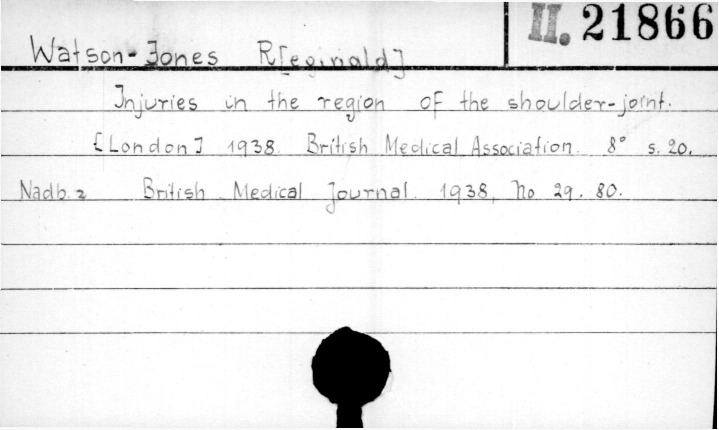 II. 21866
Watson-Jones R[eginald]
Injuries in the region of the shoulder-joint.
[London] 1938. British Medical Association. 8° s. 20.
Nadb. z British Medical Journal. 1938, No 29. 80.